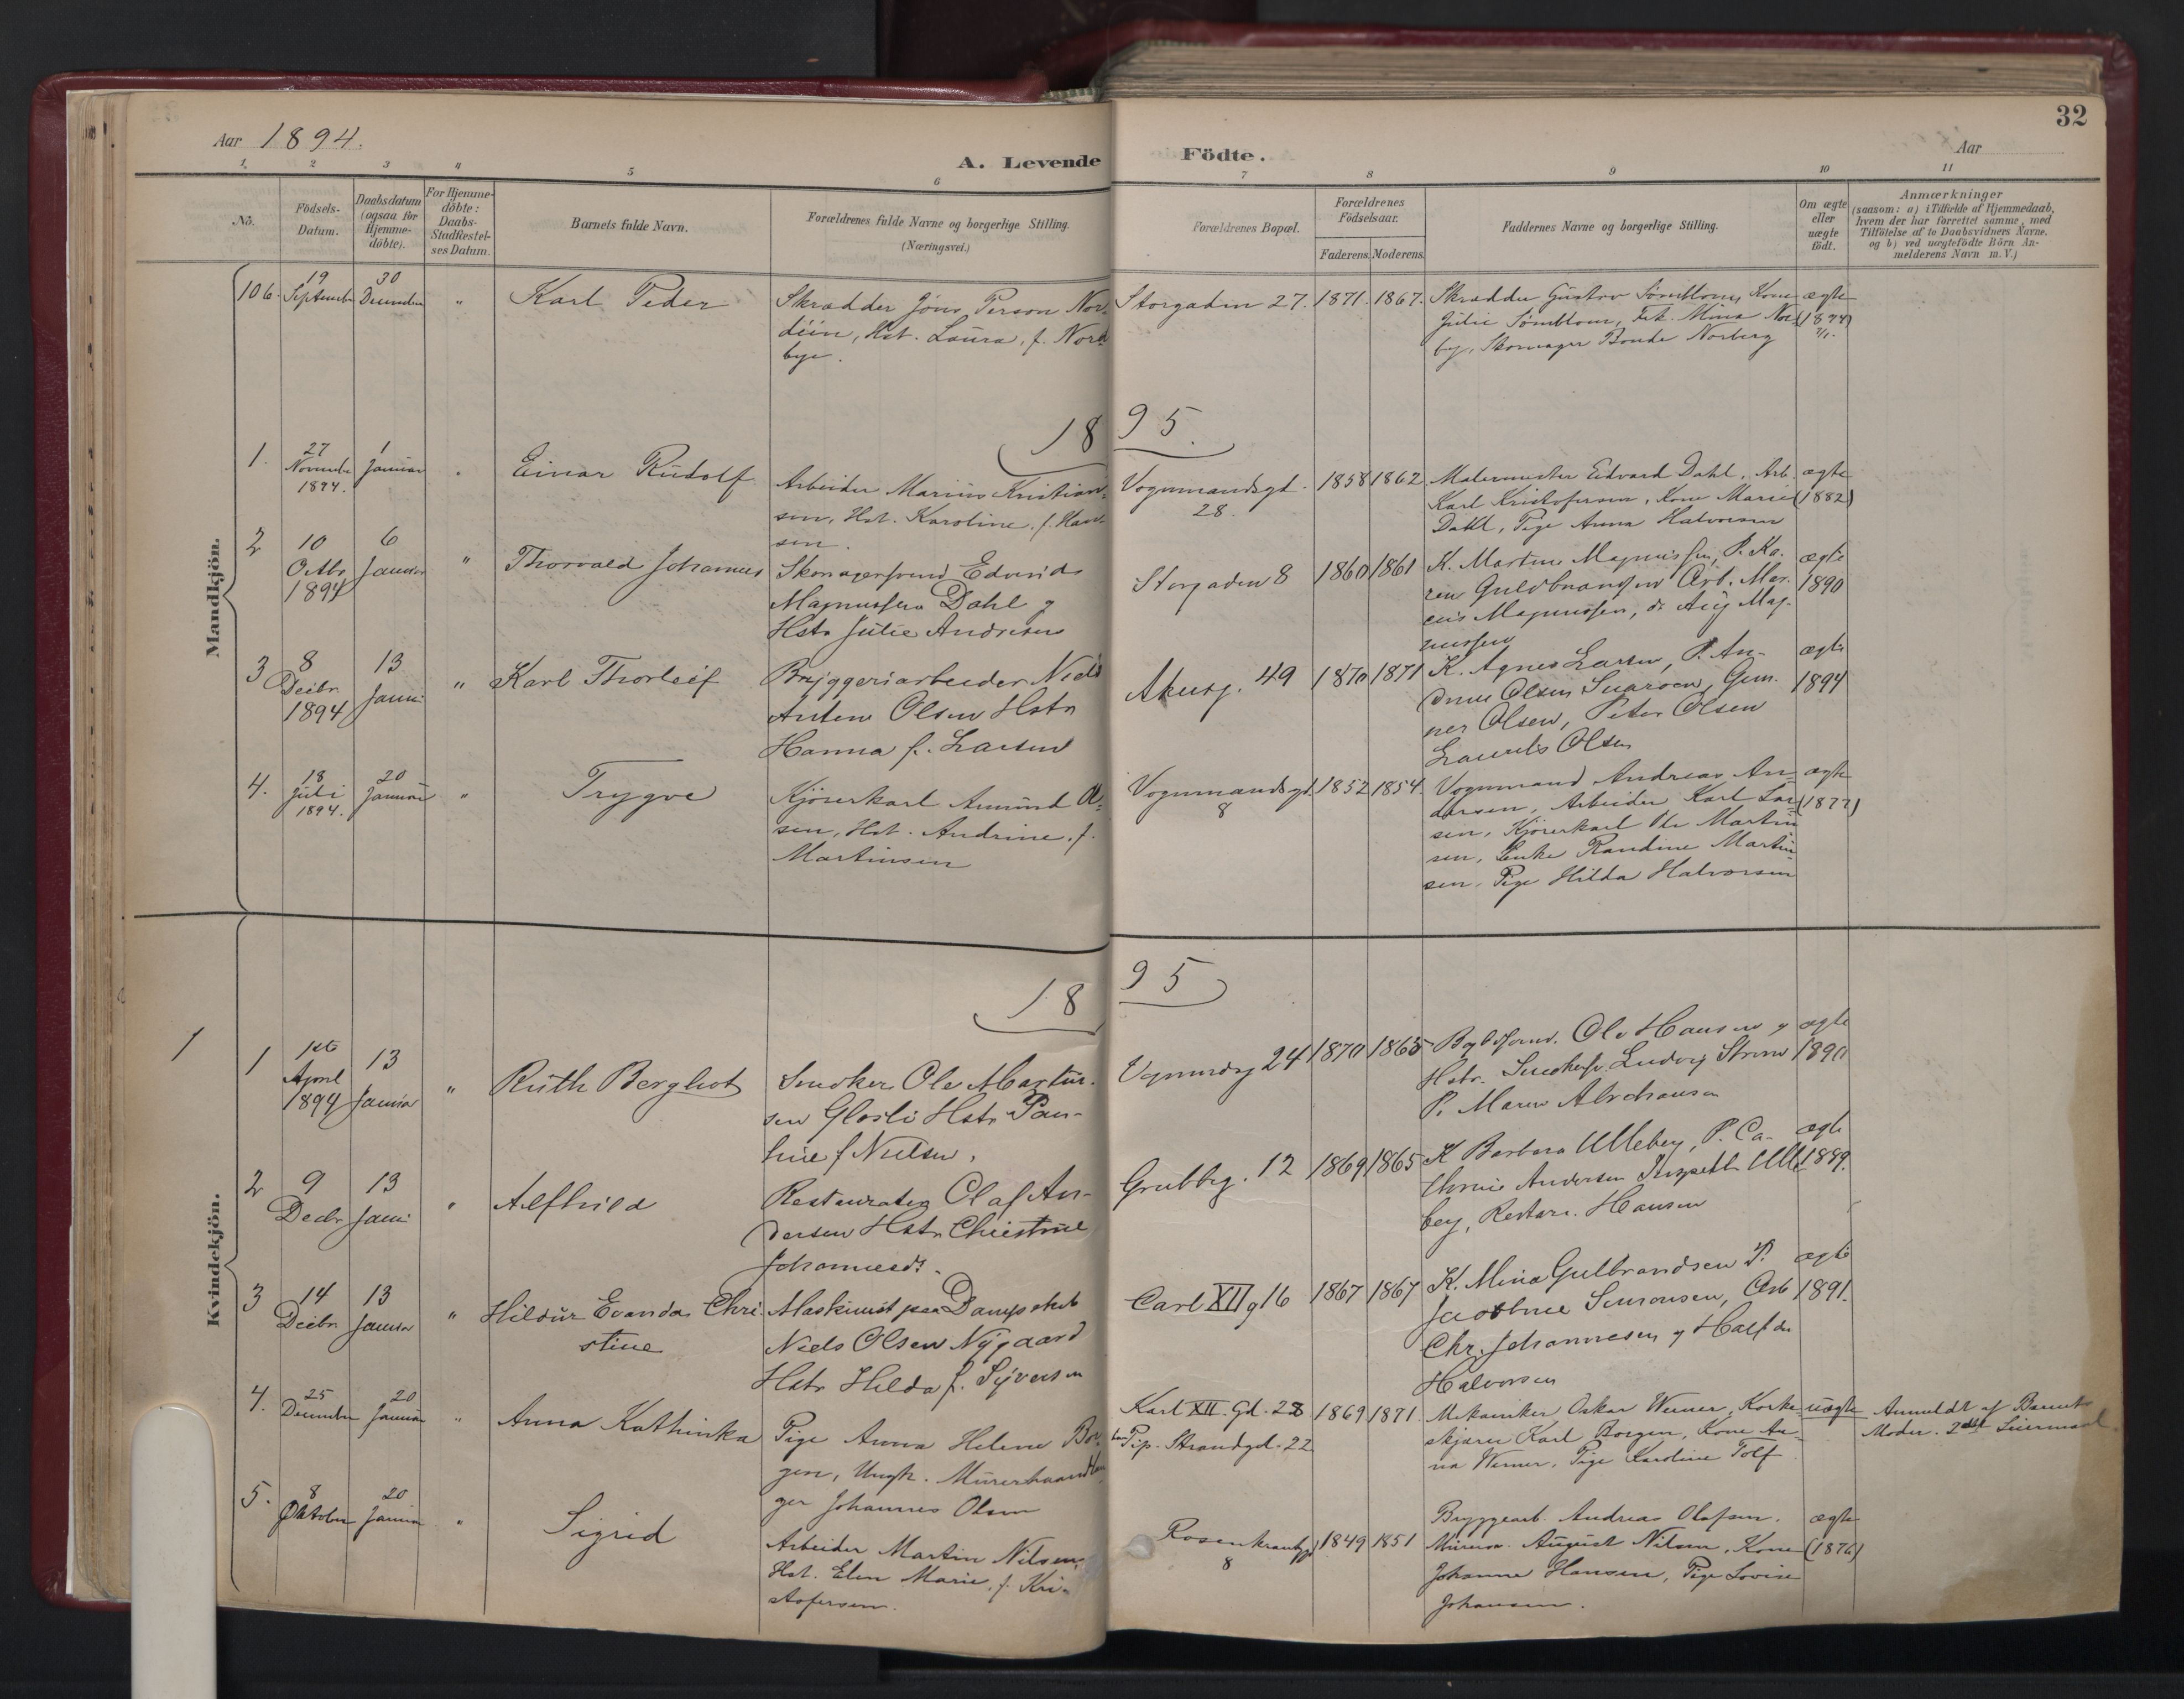 32
Aar 1894.
A. Levende Födte.
Aar
1. 2 3 4 5 6 7 8 9 10 11
No.
Födsels-Datum.
Daabsdatum (ogsaa for Hjemme-döbte).
For Hjemme-döbte: Daabs-Stadfæstel-ses Datum.
Barnets fulde Navn.
Forældrenes fulde Navne og borgerlige Stilling.
(Næringsvei.)
Forældrenes Bopæl.
Forældrenes Födselsaar.
Faderens. Moderens.
Faddernes Navne og borgerlige Stilling.
Om ægte eller uægte födt.
Anmærkninger
(saasom: a) i Tilfælde af Hjemmedaab,
hvem der har forrettet samme, med
Tilföielse af to Daabsvidners Navne.
og b) ved uægtefödte Börn An-
melderens Navn m. V.)
Mandkjön.
106. 19 September 30 December " Karl Peder
Skrædder Jöns Person Nor-
déin, Hst. Laura, f. Nord
bye.
Storgaden 27. 1871. 1867.
Skrædder Gustav Kone
Julie Frk. Mina Nor-
by, Skomager Bonde Norberg
ægte (1894)
1895.
1. 27 November 1894. 1 Januar Einar Rudolf
Arbeider Marius Kristian-
sen, Hst. Karoline, f. Han-
sen.
Vognmandsgd. 28. 1858 1862
Malermester Edvard Dahl, Arb.
Karl Kristofersen, Kone Marie
Dahl, Pige Anna Halvorsen
ægte (1882)
2 10 Octbr 1894 6 Januar " Thorvald Johannes
Skomagersvend Edvard
Magnussen Dahl og
Hstr Julie Andresen
Storgaden 8 1860 1861
K. Martine Magnussen, P. Ka-
ren Guldbrandsen Arb. Mar-
ius Magnussen, do Aug Mag-
nussen
ægte 1890
3 8 Decbr 1894 13 Januar " Karl Thorleif
Bryggeriarbeider Niels
Anton Olsen Hstr
Hanna f. Larsen
Akersg. 49 1870 1871
K. Agnes Larsen, P. An-
Olsen Gun-
ner Olsen, Peter Olsen
Laurits Olsen
ægte 1894
4. 18 Juli 1894. 20 Januar " Trygve
Kjörerkarl Amund Ol-
sen, Hst. Andrine, f.
Martinsen
Vognmandsgd. 8 1852 1854
Vognmand Andreas An-
dersen, Arbeider Karl Lar-
sen, Kjörerkarl Martin
sen, Enke Randine Martin-
sen, Pige Hilda Halvorsen
ægte (1877)
1895
Kvindekjön.
1
1 1ste April 1894 13 Januar " Ruth Bergliot
Snedker Ole Martin-
sen Glosli Hstr Pau-
line f Nielsen.
Vognmdsg 24 1870 1865
Ole Hansen og
Hstr. Ludvig
P. Maren
ægte 1890
2 9 Decbr 13 Januar " Alfhild
Restauratør Olaf An-
dersen Hstr Christine
Johannesdr.
Grubbeg. 12 1869 1865
K Barbara Ulleberg, P. Ca-
thrine Andersen Ulle-
berg, Restaur. Hansen
ægte 1889.
3 14 Decbr 13 Januar " Hildur Evanda Chri
stine
Maskinist paa Dampskib
Niels Olsen Nygaard
Hstr Hilda f. Syversen
Carl XII g 16 1867 1867
K. Mina Gulbrandsen P.
Jacobine Simonsen, Arb
Chr. Johannesen og Halfdan
Halvorsen
ægte 1891.
4. 25 December 20 Januar " Anna Kathinka
Pige Anna Helene Bor-
gen, Ungk. Murerhaandlan
ger Johannes Olsen
Karl XII. Gd. 28
Pip. Strandgd. 22
1869 1871.
Mekaniker Oskar Werner, Korke-
skjærer Karl Borgen, Kone An-
na Werner, Pige Karoline Tolf
uægte
Anmeldt af Barnets
Moder. 2det Leiermaal.
5. 8 Oktober 20 Januar " Sigrid
Arbeider Martin Nilsen,
Hst. Elen Marie, f. Kri-
stofersen.
Rosenkrantzgd 8 1849 1851
Bryggearb. Andreas Olafsen.
August Nilsen, Kone
Johanne Hansen, Pige Lovise
Johansen.
ægte (1876)